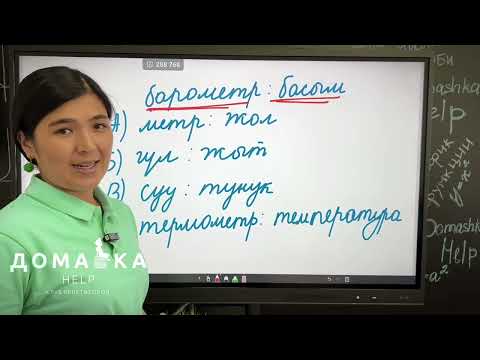 288 766
барометр : басым
А) метр : жол
Б) гүл : жыт
В) суу : тунук
термометр : температура
ДОМАШКА
HELP
Domashka
Help
y=x²
Domashka
Help